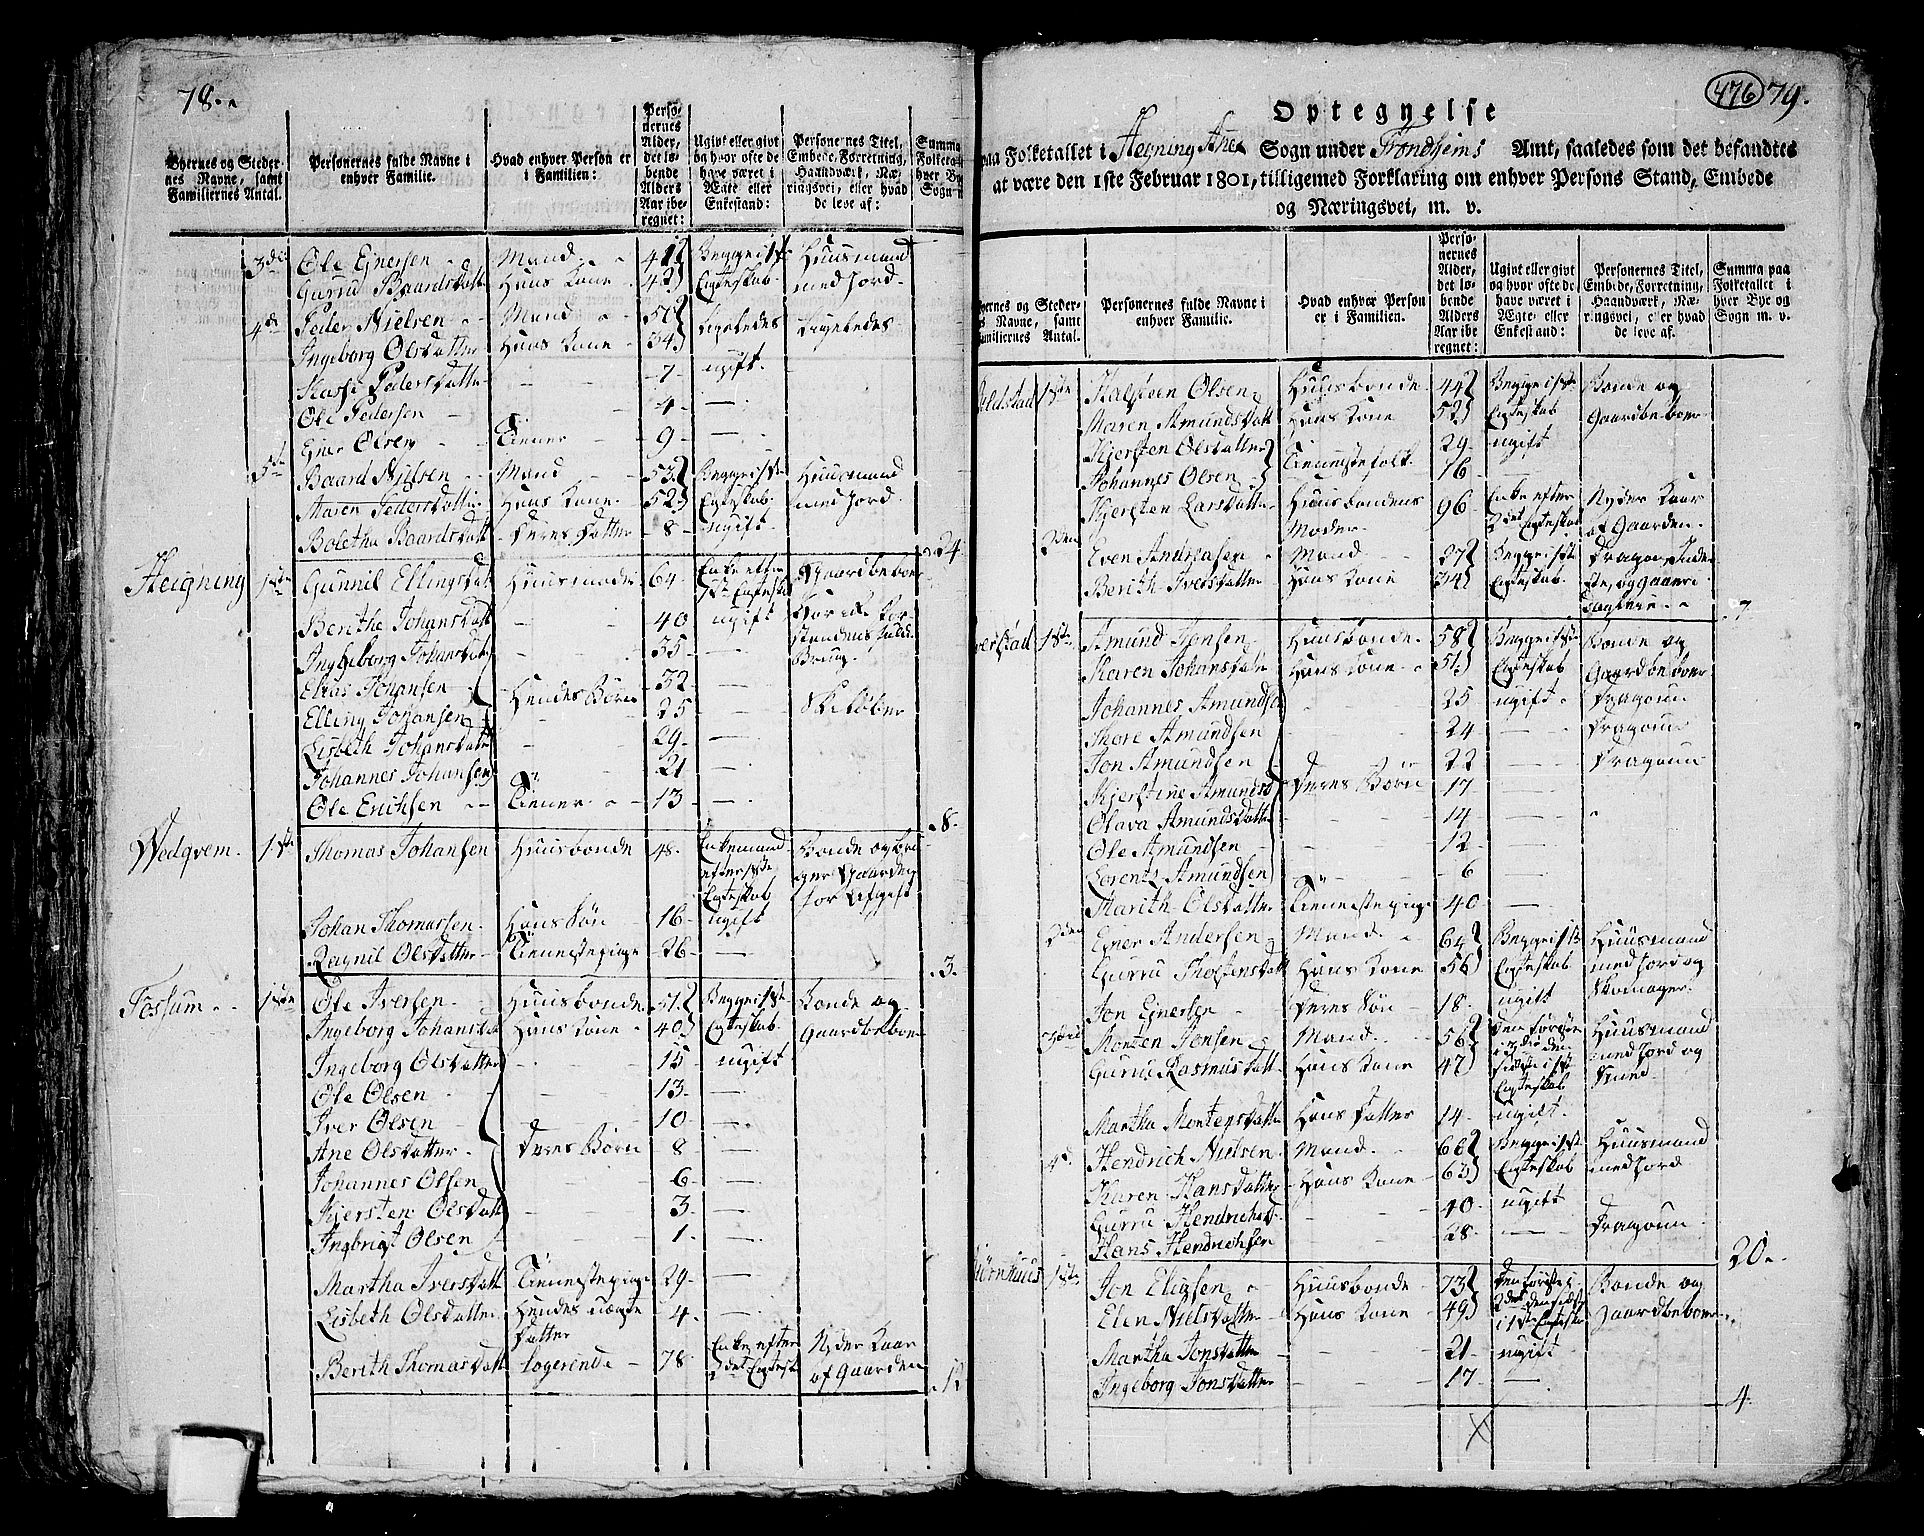 78.
Byernes og Steder-
nes Navne, samt
Familiernes Antal.
Personernes fulde Navne i
enhver Familie.
Hvad enhver Person er
i Familien:
Perso-
nernes
Alder,
det lø-
bende
Alders
Aar ibe-
regnet:
Ugivt eller givt
og hvor ofte de
have været i
Ægte eller
Enkestand:
Personernes Titel,
Embede, Forretning,
Haandværk, Næ-
ringsvei, eller hvad
de leve af:
Summa
Folketa
hver By
Sogn
3die Ole Ejnersen Mand 41 Begge i 1ste Huusmand
Gurru Baardsdatt Hans Kone 42 Egteskab med Jord.
4de Peder Nielsen Mand 51 Ligeledes Ligeledes
Ingeborg Olsdatter Hans Kone 34
Pedersdatter 7 ugift.
Ole Pedersen 4 —
Ejner Olsen Tiener 9 —
5te Baard Nielsen Mand 53 Begge i 1ste Huusmand
Maren Pedersdatter Hans Kone 52 Egteskab med Jord.
Boletha Baardsdatt Deres Datter 8 ugift. 24
Heigning 1ste Gunnil Ellingsdatt Huusmoder 64 Enke efter Gaardbeboer
1ste Egteskab
Berithe Johansdatt 40 ugift
Ingeborg Johansdatt 35 —
Elias Johansen Hendes Børn 32 —
Elling Johansen 25 — Skiløber
Lisbeth Johansdatt 29 —
Johannes Johansen 21 —
Ole Erichsen Tiener 13 — 8.
Wedqvem. 1ste Thomas Johansen Huusbonde 48 Enkemand Bonde og bru
efter 1ste ger Gaarden
Egteskab for Afgift
Johan Thomassen Hans Søn 16 ugift
Ragnil Olsdatter Tienestepige 26 — 3.
Fossum 1ste Ole Iversen Huusbonde 51 Begge i 1ste Bonde og
Ingeborg Johansdatt Hans Kone 40 Egteskab Gaardbeboer
Ingeborg Olsdatter 15 ugift
Ole Olsen 13 —
Iver Olsen 10 —
Ane Olsdatter Deres Børn 8 —
Johannes Olsen 6 —
Kjersten Olsdatt 3 —
Ingbrigt Olsen 1 —
Martha Iversdatt Tienestepige 29 —
Lisbeth Olsdatter Hendes uægte 4 —
Datter
Berith Thomasdatt logerende 78 Enke efter Nyder Kaar
2det Egtesk af Gaarden 12
476 79.
Optegnelse
paa Folketallet i Hegning Anex Sogn under Trondhiems Amt, saaledes som det befandtes
at være den 1ste Februar 1801, tilligemed Forklaring om enhver Persons Stand, Embede
og Næringsvei, m. v.
ernes og Steder-
s Navne, samt
amiliernes Antal.
Personernes fulde Navne i
enhver Familie.
Hvad enhver Person
er i Familien.
Perso-
nernes
Alder,
det lø-
bende
Alders
Aar ibe
regnet:
Ugivt eller givt
og hvor ofte de
have været i
Ægte- eller
Enkestand:
Personernes Titel,
Embede, Forretning,
Haandværk, Næ-
ringsvei, eller hvad
de leve af.
Summa paa
Folketallet i
hver Bye og
Sogn m. v.
1ste Halsteen Olsen Huusbonde 44 Begge i 1ste Bonde og
Maren Amundsdatt Hans Kone 52 Egteskab Gaardbeboer
Kjersten Olsdatter Tienestefolk 29 ugift
Johannes Olsen 16 —
Kjersten Larsdatter Huusbondens 96 Enke efter Nyder Kaar
Moder 2det Egteskab af Gaarden.
2den Even Andreasen Mand 27 Begge i 1ste Dragon
Berith Iversdatter Hans Kone 34 Egteskab 7.
1ste Amund Jonsen Huusbonde 58 Begge i 1ste Bonde og
Karen Johansdatt Hans Kone 51 Egteskab Gaardbeboer
Johannes Amundse 25 ugift Dragoun
Thore Amundsen 24 — Dragoun
Jon Amundsen 22 — Dragoun
Kjerstine Amundsd Deres Børn 17 —
Olava Amundsdatter 14 —
Ole Amundsen 12 —
Lorents Amundsen 6 —
Marith Olsdatter Tienestepige 40 —
2den Ejner Andersen Mand 64 Begge i 1ste Huusmand
Gurru Tholfinsdatt Hans Kone 56 Egteskab med Jord og
Jon Ejnersen Deres Søn 18 ugift Skomager
3die Morten Jonsen Mand 56 Den første Huusmand
Gurru Rasmusdatt Hans Kone 47 i 3die den med Jord og
sidste i 1ste Smed
Egteskab
Martha Mortensdatter Hans Datter 14 ugift.
4de Hendrich Nielsen Mand 66 Begge i 1ste Huusmand
Karen Hansdatter Hans Kone 63 Egteskab med Jord
Gurru Hendrichsd 40 ugift
Hans Hendrichsen 28 — Dragoun 20.
1ste Jon Elissen Huusbonde 73 Den første i Bonde og
Elen Nielsdatter Hans Kone 49 2det den sidste Gaardbeboer
i 1ste Egteskab
Martha Jonsdatter 21 ugift
Ingeborg Jonsdatter 17 — 4.
X